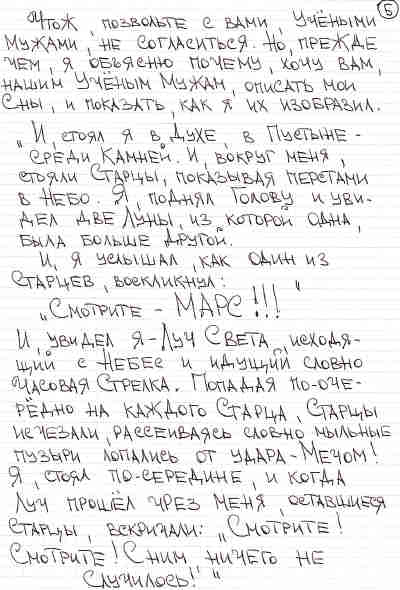 5
Чтож, позвольте с вами, Учёными
Мужами, не согласиться. Но, прежде
чем, я объясню почему, хочу вам,
нашим Учёным Мужам, описать мои
Сны, и показать, как я их изобразил.
„И, стоял я в Духе, в Пустыне -
Среди Камней. И, вокруг меня,
стояли Старцы, показывая перстами
в Небо. Я, поднял Голову и уви-
дел две Луны, из которой одна,
была больше другой.
И, я услышал, как один из
Старцев, воскликнул:
„Смотрите - МАРС!!!"
И, увидел я - Луч Света, исходя-
щий с Небес и идущий словно
Часовая Стрелка. Попадая по-оче-
рёдно на каждого Старца, Старцы
исчезали, рассеиваясь словно мыльные
пузыри лопались от удара - Мечом!
Я, стоял по-середине, и когда
Луч прошёл чрез меня, оставшиеся
Старцы, вскричали: „Смотрите!
Смотрите! Сним ничего не
Случилось!" "